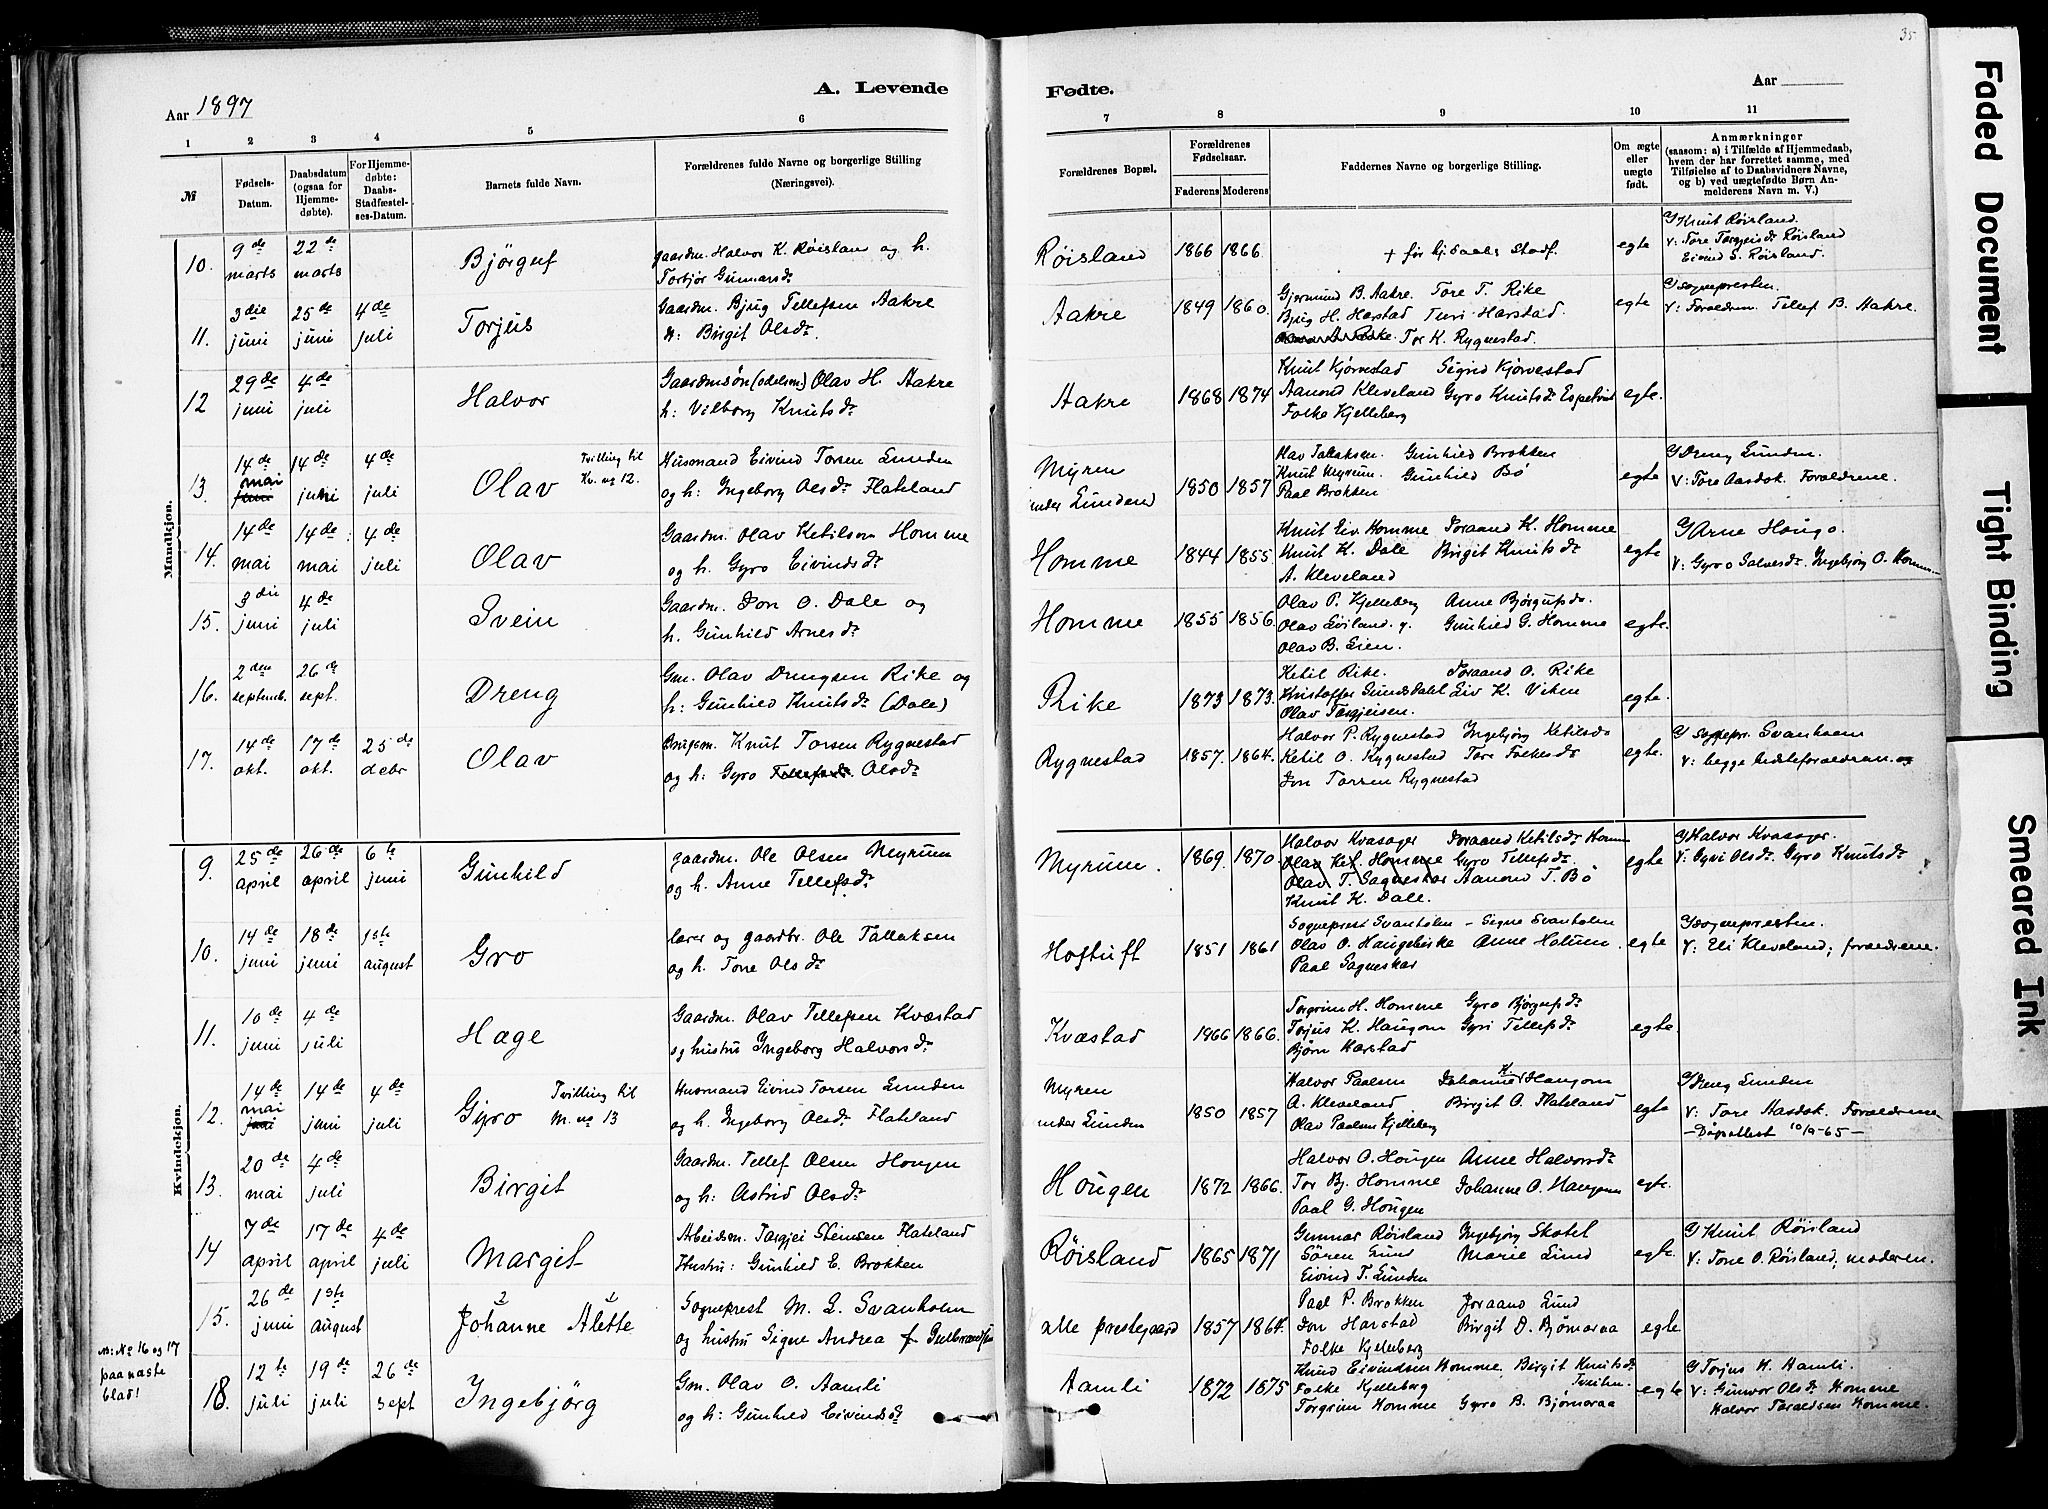 35
Aar 1897
A. Levende
Fødte.
Aar
1 2 3 4 5 6 7 8 9 10 11
№
Fødsels-Datum.
Daabsdatum (ogsaa for Hjemme-døbte).
For Hjemme-døbte: Daabs-Stadfæstel-ses-Datum.
Barnets fulde Navn.
Forældrenes fulde Navne og borgerlige Stilling (Næringsvei).
Forældrenes Bopæl.
Forældrenes Fødselsaar.
Faderens Moderens
Faddernes Navne og borgerlige Stilling.
Om ægte eller uægte født.
Anmærkninger (saasom: a) i Tilfælde af Hjemmedaab, hvem der har forrettet samme, med Tilføielse af to Daabsvidners Navne, og b) ved uægtefødte Børn An-melderens Navn m. V.)
Mandkjøn.
10. 9de marts 22de marts Bjørguf gaardm. Halvor K. Røislan og h. Torbjør Gunnarsdr Røisland 1866 1866 + før hj.daabs Stadf. egte Knut Røisland. V: Tore Torgjeisdr Røisland Eivind S. Røisland.
11. 3die juni 25de juni 4de juli Torjus Gaardm. Bjug Tellefsen Aakre h: Birgit Olsdr Aakre 1849 1860. Gjermund B. Aakre. Tore T. Rike
Bjug H. Harstad Turi Harstad.
Tor K. Rygnestad. egte Sognepresten. V: Foraeldrem. Tellef B. Aakre.
12 29de juni 4de juli Halvor Gaardmsøn (odelsm) Olav H. Aakre h: Vilborg Knutsdr Aakre 1868 1874 Knut Kjørvestad Signe Kjørvestad
Aamund Kleveland Gyro Knutsdr
Folke Kjelleberg egte.
13. 14de mai juni 14de juni 4de juli Olav Tvilling til Kv. no 12. Husmand Eivind Torsen Lunden og h: Ingeborg Olsdr Flateland Myren under Lunden 1850 1857 Olav Tallaksen. Gunhild Brokken
Knut Myrum. Gunhild Bø
Paal Brokken egte Dreng Lunden. V: Tore Aasdok. Foraeldrene.
14. 14de mai 14de mai 4de juli Olav Gaardm. Olav Ketilson Homme og h. Gyro Eivindsdr Homme 1844 1855 Knut Eiv. Homme Joraand K. Homme
Knut K. Dale Birgit Knutsdr
A. Kleveland egte Arne Haugo. V: Gyro Salvesdr Ingebjørg O. Homm
15. 3die juni 4de juli Svein Gaardm. Jon O. Dale og h. Gunhild Arnesdr Homme 1855 1856. Olav P. Kjelleberg Anne Bjørgufsdr.
Gunhild G. Homme
Olav B. Lien. egte.
16. 2den septemb. 26de sept. Dreng Gm. Olav Drengsen Rike og h: Gunhild Knutsdr (Dale) Rike 1873 1873. Ketil Rike. Joraand O. Rike
Kristoffer Gundsdalet Liv K. Viken
Olav Torgjeisen. egte.
17. 14de okt. 17de okt. 25de debr Olav Brugsm. Knut Torsen Rygnestad og h: Gyro Tellefsdr Olsdr Rygnestad 1857. 1864. Halvor P. Rygnestad Ingebjørg Ketilsdr
Ketil O. Rygnestad Tore Folkesdr
Jon Torsen Rygnestad egte. sognepr. Svanholm V: begge bedsteforaeldren.
Kvindekjøn.
9. 25de april 26de april 6te juni Gunhild gaardm. Ole Olsen Myrum og h. Anne Tellefsdr Myrum. 1869. 1870. Halvor Kvasager Joraand Ketilsdr Homm
Olav Ket. Homme Gyro Tellefsdr.
Olav T. Sagneskar Aanond T. Bø
Knut K. Dale. egte Halvor Kvasager. V: Gyvi Olsdr. Gyro Knutsdr
10. 14de juni 18de juni 1ste august Gro lærer og gaardbr. Ole Tallaksen og h. Tone Olsdr Hoftuft 1851 1861 Sogneprest Svanholm – Signe Svanholm
Olav O. Haugebirke Anne Holum.
Paal Sagneskar egte Sognepresten. V: Eli Kleveland; foraeldrene.
11. 10de juni 4de juli Hæge Gaardm. Olav Tellefsen Kvæstad og hustru Ingeborg Halvorsdr Kvæstad 1866 1866. Torgrim H. Homme Gyro Bjørgufsdr
Torjus K. Haugom Gyri Tellefsdr
Bjørn Harstad egte.
12. 14de mai juni 14de juni 4de juli Gyro Tvilling til M. no 13 Husmand Eivind Torsen Lunden og h. Ingeborg Olsdr Flateland Myren under Lunden 1850 1857 Halvor Paalsen Johanne K Haugom
A. Kleveland Birgit O. Flateland
Olav Paalsen Kjelleberg egte Dreng Lunden V: Tore Aasdok. Foraeldrene – Dåpsattest 10/9-65 –
13. 20de mai 4de juli Birgit Gaardm. Tellef Olsen Hougen og h: Astrid Olsdr Hougen 1872 1866. Halvor O. Hougen Anne Halvorsdr
Tor Bj. Homme Johanne O. Haugen
Paal G. Hougen egte.
14 7de april 17de april 4de juli Margit Arbeidsm. Torgjei Steinsen Flateland Hustru: Gunhild E. Brokken Røisland 1865 1871 Gunnar Røisland Ingebjørg Skotel
Søren Lund Marie Lund
Eivind T. Lunden egte. Knut Røisland V: Tone O. Røisland, moderen.
15. 26de juni 1ste august Johanne 2 Alette 1 Sogneprest M. L. Svanholm og hustru Signe Andrea f. Gulbrandsen alle prestegaard 1857 1864. Paal P. Brokken Joraand Lund
Jon Harstad Birgit D. Bjømaraa
Folke Kjelleberg egte
NB: No 16 og 17 paa næste blad!
18. 12te juli 19de juli 26de sept Ingebjørg Gm. Olav O. Aamli og h: Gunhild Eivindsdr Aamli 1872 1875 Knud Eivindsen Homme. Birgit Knutsdr Tveiten.
Folke Kjelleberg
Torgrim Homme Gyro B. Bjømaraa egte Torjus K. Aamli. V: Gunvor Olsdr Homme Halvor Toraldsen Homme.
Faded Document
Tight Binding
Smeared Ink